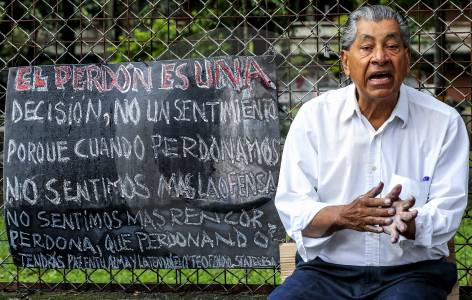 EL PERDÓN ES UNA
DECISIÓN, NO UN SENTIMIENTO
PORQUE CUANDO PERDONAMOS
NO SENTIMOS MAS LA OFENSA
NO SENTIMOS MAS RENCOR,
PERDONA, QUE PERDONANDO
TENDRAS PAZ EN TU ALMA Y LA TENDRA EL